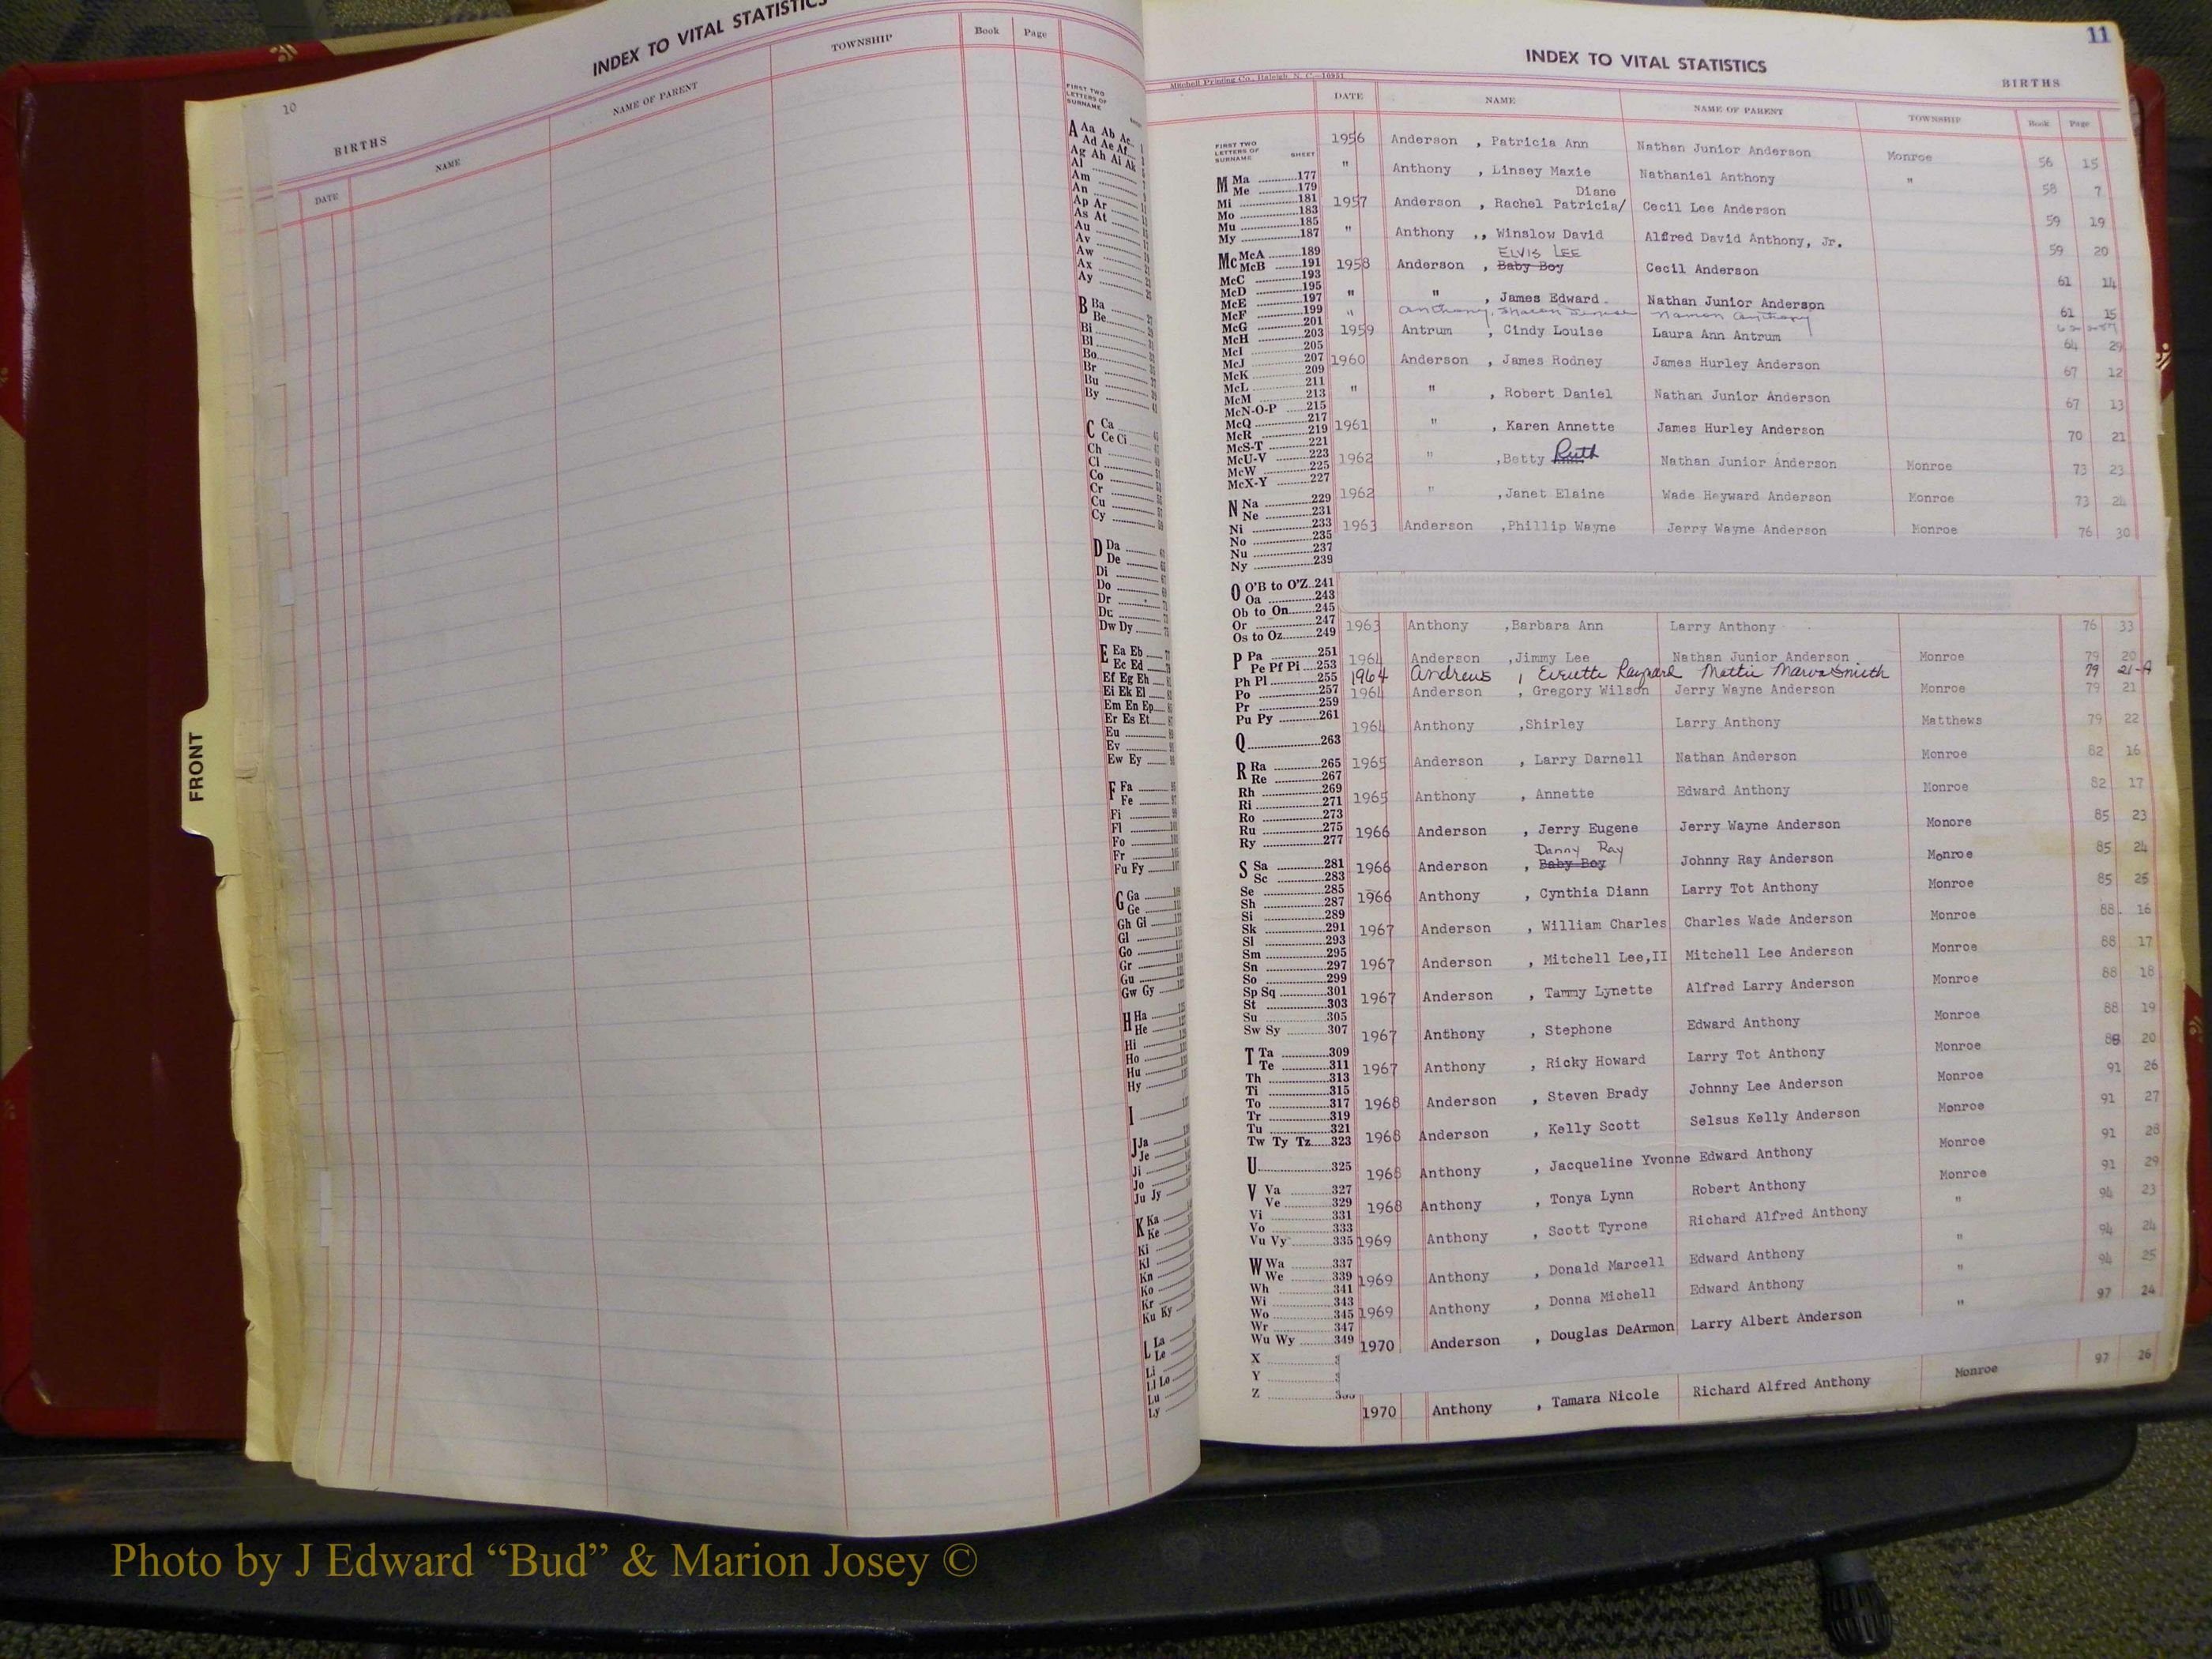 10
INDEX TO VITAL STATISTICS
BIRTHS
DATE NAME NAME OF PARENT TOWNSHIP Book Page
FIRST TWO
LETTERS OF
SURNAME
A Aa Ab Ac
Ad Ae Af
Ag Ah Ai Ak
Al
Am
An
Ap Ar
As At
Au
Av
Aw
Ax
Ay
B Ba
Be
Bi
Bl
Bo
Br
Bu
By
C Ca
Ce Ci
Ch
Cl
Co
Cr
Cu
Cy
D Da
De
Di
Do
Dr
Du
Dw Dy
E Ea Eb
Ec Ed
Ef Eg Eh
Ei Ek El
Em En Ep
Er Es Et
Eu
Ev
Ew Ey
F Fa
Fe
Fi
Fl
Fo
Fr
Fu Fy
G Ga
Ge
Gh Gi
Gl
Go
Gr
Gu
Gw Gy
H Ha
He
Hi
Ho
Hu
Hy
I
J Ja
Je
Ji
Jo
Ju Jy
K Ka
Ke
Ki
Kl
Kn
Ko
Kr
Ku Ky
L La
Le
Li
Ll Lo
Lu
Ly
FRONT
11
INDEX TO VITAL STATISTICS
Mitchell Printing Co., Raleigh, N. C.—10951
BIRTHS
DATE NAME NAME OF PARENT TOWNSHIP Book Page
FIRST TWO
LETTERS OF
SURNAME SHEET
M Ma 177
Me 179
Mi 181
Mo 183
Mu 185
My 187
Mc McA 189
McB 191
McC 193
McD 195
McE 197
McF 199
McG 201
McH 203
McI 205
McJ 207
McK 209
McL 211
McM 213
McN-O-P 215
McQ 217
McR 219
McS-T 221
McU-V 223
McW 225
McX-Y 227
N Na 229
Ne 231
Ni 233
No 235
Nu 237
Ny 239
O O'B to O'Z 241
Oa 243
Ob to On 245
Or 247
Os to Oz 249
P Pa 251
Pe Pf Pi 253
Ph Pl 255
Po 257
Pr 259
Pu Py 261
Q 263
R Ra 265
Re 267
Rh 269
Ri 271
Ro 273
Ru 275
Ry 277
S Sa 281
Sc 283
Se 285
Sh 287
Si 289
Sk 291
Sl 293
Sm 295
Sn 297
So 299
Sp Sq 301
St 303
Su 305
Sw Sy 307
T Ta 309
Te 311
Th 313
Ti 315
To 317
Tr 319
Tu 321
Tw Ty Tz 323
U 325
V Va 327
Ve 329
Vi 331
Vo 333
Vu Vy 335
W Wa 337
We 339
Wh 341
Wi 343
Wo 345
Wr 347
Wu Wy 349
X
Y
Z
1956 Anderson , Patricia Ann Nathan Junior Anderson Monroe 56 15
" Anthony , Linsey Maxie Nathaniel Anthony " 58 7
Diane
1957 Anderson , Rachel Patricia/ Cecil Lee Anderson 59 19
" Anthony ,, Winslow David Alfred David Anthony, Jr. 59 20
ELVIS LEE
1958 Anderson , Baby Boy Cecil Anderson 61 14
" " , James Edward Nathan Junior Anderson 61 15
" Anthony, Sharon Anthony
1959 Antrum , Cindy Louise Laura Ann Antrum 64 29
1960 Anderson , James Rodney James Hurley Anderson 67 12
" " , Robert Daniel Nathan Junior Anderson 67 13
1961 " , Karen Annette James Hurley Anderson 70 21
1962 " ,Betty Ruth Nathan Junior Anderson Monroe 73 23
1962 " ,Janet Elaine Wade Heyward Anderson Monroe 73 24
1963 Anderson ,Phillip Wayne Jerry Wayne Anderson Monroe 76 30
1963 Anthony ,Barbara Ann Larry Anthony 76 33
1964 Anderson ,Jimmy Lee Nathan Junior Anderson Monroe 79 20
1964 Andrews , Everette Raynard Mattie Marva Smith 79 21-A
1964 Anderson , Gregory Wilson Jerry Wayne Anderson Monroe 79 21
1964 Anthony ,Shirley Larry Anthony Matthews 79 22
1965 Anderson , Larry Darnell Nathan Anderson Monroe 82 16
1965 Anthony , Annette Edward Anthony Monroe 82 17
1966 Anderson , Jerry Eugene Jerry Wayne Anderson Monore 85 23
Danny Ray
1966 Anderson , Baby Boy Johnny Ray Anderson Monroe 85 24
1966 Anthony , Cynthia Diann Larry Tot Anthony Monroe 85 25
1967 Anderson , William Charles Charles Wade Anderson Monroe 88. 16
1967 Anderson , Mitchell Lee,II Mitchell Lee Anderson Monroe 88 17
1967 Anderson , Tammy Lynette Alfred Larry Anderson Monroe 88 18
1967 Anthony , Stephone Edward Anthony Monroe 88 19
1967 Anthony , Ricky Howard Larry Tot Anthony Monroe 88 20
1968 Anderson , Steven Brady Johnny Lee Anderson Monroe 91 26
1968 Anderson , Kelly Scott Selsus Kelly Anderson Monroe 91 27
1968 Anthony , Jacqueline Yvonne Edward Anthony Monroe 91 28
1968 Anthony , Tonya Lynn Robert Anthony Monroe 91 29
1969 Anthony , Scott Tyrone Richard Alfred Anthony " 94 23
1969 Anthony , Donald Marcell Edward Anthony " 94 24
1969 Anthony , Donna Michell Edward Anthony " 94 25
1970 Anderson , Douglas DeArmon Larry Albert Anderson " 97 24
1970 Anthony , Tamara Nicole Richard Alfred Anthony Monroe 97 26
Photo by J Edward “Bud” & Marion Josey ©